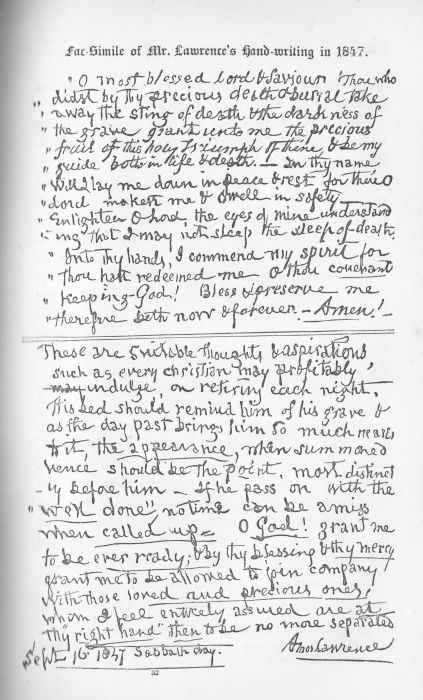 Fac-Simile of Mr. Lawrence's Hand-writing in 1847.
"O most blessed Lord & Saviour Thou who
" didst by thy precious death & burial take
" away the sting of death & the darkness of
" the grave grant unto me the precious
" fruit of this holy triumph of thine, & be my
" guide both in life & death. — In thy name
" will I lay me down in peace & rest for thou O
" Lord makest me to dwell in safety.
" Enlighten O Lord, the eyes of mine understand
" ing that I may not sleep the sleep of death.
" Into thy hands, I commend my spirit for
" thou hast redeemed me O thou covenant
" Keeping-God! Bless & preserve me
" therefore both now & forever. — Amen! —
These are Suitable thoughts & aspirations
such as every christian may profitably
may indulge, on retiring each night.
His bed should remind him of his grave &
as the day past brings him so much nearer
to it, the appearance, when summoned
hence should be the point, most distinct
-ly before him — If he pass on with the
"well done", no time can be amiss
when called up = O God! grant me
to be ever ready; & by thy blessing & thy mercy
grant me to be allowed to join company
with those loved and precious ones,
whom I feel entirely assured are at
thy "right hand" then to be no more separated
Sept 16. 1847 Sabbath day. Amos Lawrence